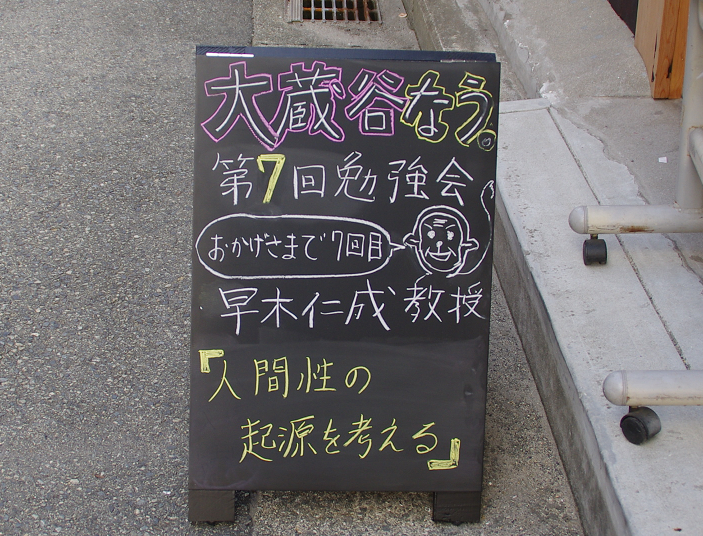 大蔵谷なう。
第7回勉強会
おかげさまで7回目
早木仁成教授
『人間性の
起源を考える』